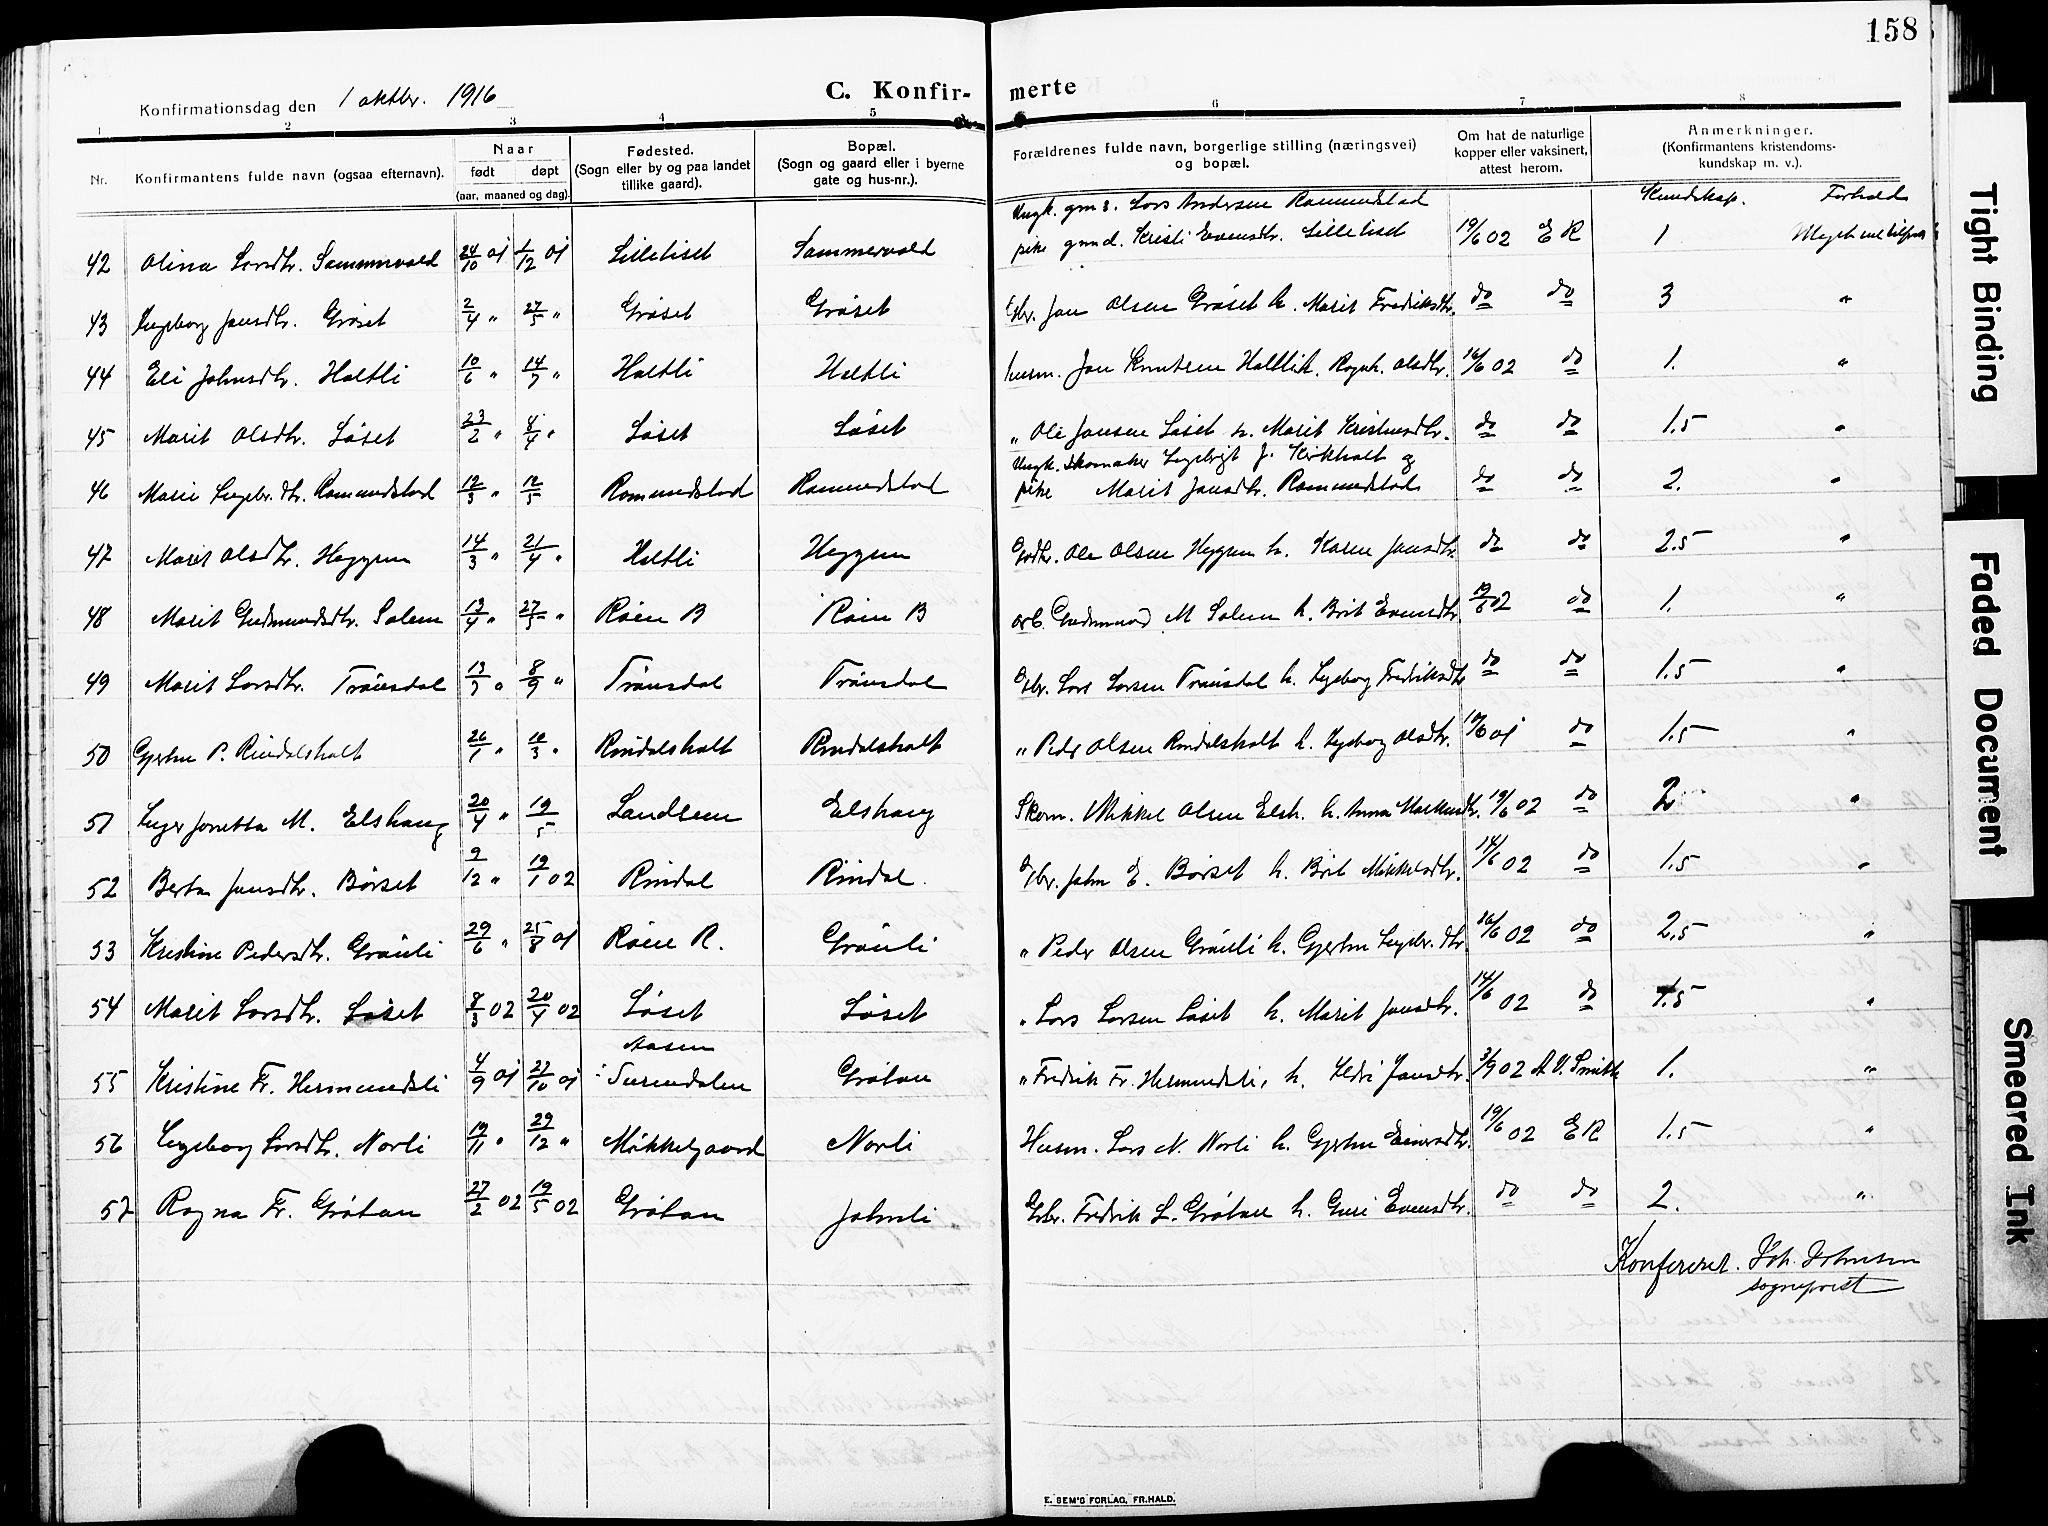 158
Konfirmationsdag den 1 oktbr. 1916
C. Konfir- merte
1 2 3 4 5 6 7 8
Nr. Konfirmantens fulde navn (ogsaa efternavn). Naar født døpt (aar, maaned og dag). Fødested. (Sogn eller by og paa landet tillike gaard). Bopæl. (Sogn og gaard eller i byerne gate og hus-nr.). Forældrenes fulde navn, borgerlige stilling (næringsvei) og bopæl. Om hat de naturlige kopper eller vaksinert, attest herom. Anmerkninger. (Konfirmantens kristendoms- kundskap m. v.).
Ungk. gms. Lars Andersen Romundstad Kundskap. Forhold
42 Olina Larsdtr. Sammervold 24/10 01 1/12 01 Lilleliset Sammervold pike gmd. Kristi Evensdtr. Lilleliset 19/6 02 E R 1 Meget vel tilfreds
43 Ingeborg Jonsdtr. Grøset 2/4 " 27/5 " Grøset Grøset Gbr. Jon Olsen Grøset h. Marit Fredriksdtr. do do 3 "
44 Eli Johnsdtr. Holtli 10/6 " 14/7 " Holtli Holtli husm. Jon Knutsen Holtli h. Ragnh. Olsdtr. 16/6 02 do 1. "
45 Marit Olsdtr. Løset 23/2 " 8/4 " Løset Løset " Ole Jonsen Løset h. Marit Kristensdtr. do do 1.5 "
Ungk. skomaker Ingebrigt J. Kirkholt og
46 Marie Ingebr.dtr. Romundstad 12/3 " 12/5 Romundstad Romundstad pike Marit Jonsdtr. Romundstad do do 2. "
47 Marit Olsdtr. Heggem 14/3 " 21/4 " Holtli Heggem Ole Olsen Heggem h. Karen Jonsdtr. do do 2.5 "
48 Marit Gudmundsdtr. Solem 13/4 " 27/5 " Røen B Røen B arb. Gudmund M Solem h. Brit Evensdtr. 19/6 02 do 1. "
49 Marit Larsdtr. Trønsdal 13/7 " 8/9 " Trønsdal Trønsdal Gbr. Lars Larsen Trønsdal h. Ingeborg Fredriksdtr do do 1.5 "
50 Gjertru P. Rindalsholt 26/1 " 10/3 " Rindalsholt Rindalsholt " Peder Olsen Rindalsholt h. Ingeborg Olsdtr. 01 do 1.5 "
51 Inger Jonetta M. Elshaug 20/4 " 19/5 Landsem Elshaug Skom. Mikkel Olsen Elsh. h. Anna Markusdtr. 19/6 02 do 2 "
52 Berta Jonsdtr. Børset 9/12 " 19/1 02 Rindal Rindal. Gbr. John E. Børset h. Brit Mikkelsdtr. 14/6 02 do 1.5 "
53 Kristine Pedersdtr. Grønli 29/6 " 25/8 01 Røen R. Grønli " Peder Olsen Grønli h. Gjertru Ingebr.dtr 16/6 02 do 2.5 "
54 Marit Larsdtr. Løset 8/3 02 20/4 02 Løset Løset " Lars Larsen Løset h. Marit Jonsdtr. 14/6 02 do 1.5 "
55 Kristine Fr. Hermundsli 4/9 01 27/10 01 Aasen i Surendalen Grøtan " Fredrik Fr. Hermundsli, h. Ildri Jonsdtr. 3/9 02 A. V. Smith 1. "
56 Ingeborg Larsdtr. Norli 19/11 " 29/12 " Mikkelgaard Norli Husm. Lars N. Norli h. Gjertru Einersdtr. 19/6 02 E R 1.5 "
57 Ragna Fr. Grøtan 27/2 02 19/5 02 Grøtan Johnsli Gbr. Fredrik L. Grøtan h. Guri Evensdtr. do do 2. "
Konfereret. Joh. Johnsen
sogneprest
E. SEM'S FORLAG, FR.HALD.
Tight Binding
Faded Document
Smeared Ink